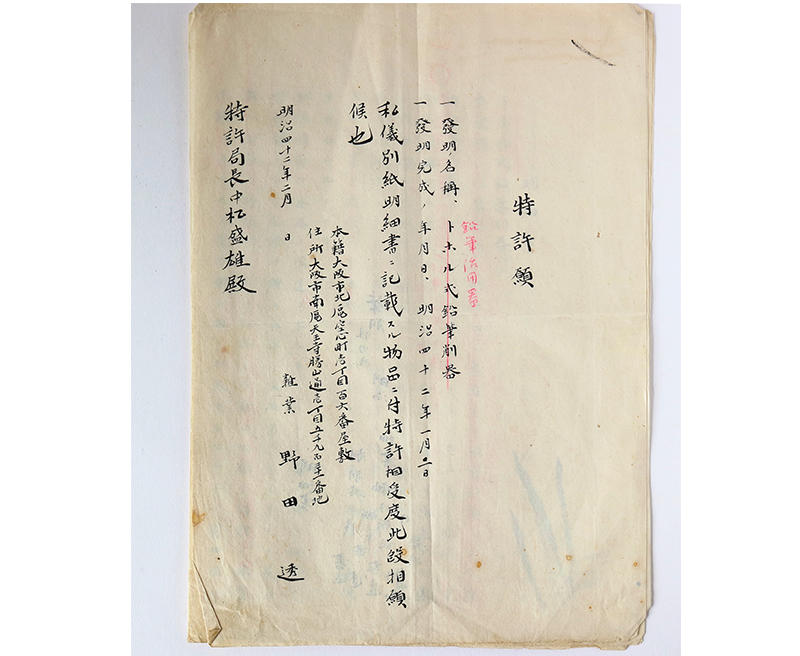 特許願
一發明ノ名稱、トホル式鉛筆削器
鉛筆
一發明完成ノ年月日、明治四十二年一月二日
私儀別紙明細書ニ記載スル物品ニ付特許相受度此段相願
候也
本籍大阪市北區空心町壱丁目百六番屋敷
住所大阪市南區天王寺勝山通壱丁目五千九百
番地
雑業 野田 透
明治四十二年二月 日
特許局長中松盛雄殿